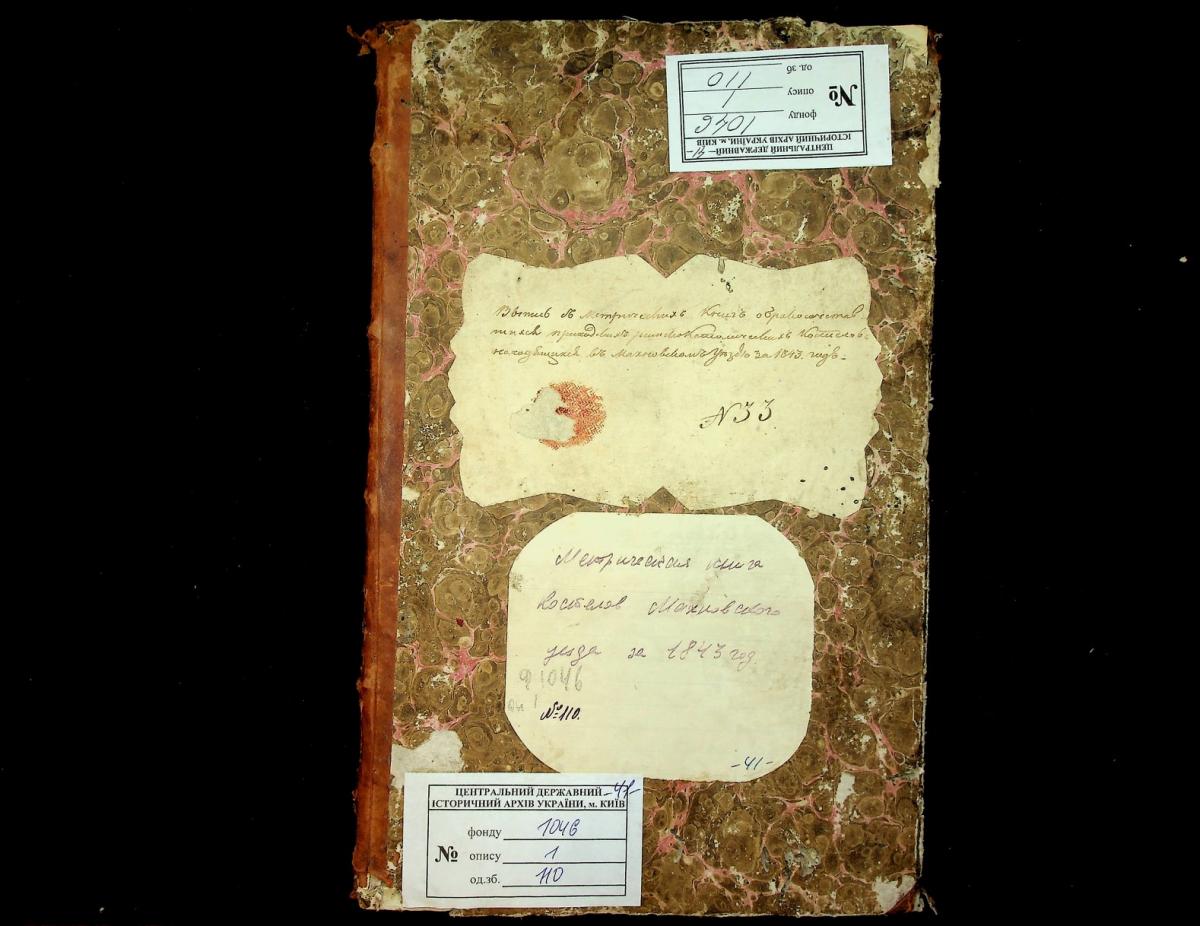 ЦЕНТРАЛЬНИЙ ДЕРЖАВНИЙ -41-
ІСТОРИЧНИЙ АРХІВ УКРАЇНИ, м. КИЇВ
фонду 1046
№ опису 1
од. зб 110
метрическихъ Книгъ
приходскихъ римско Католическихъ Костелов
находящихся въ Махновскомъ Уѣздѣ за 1843. годъ.
N 33
Метрическая книга
костелов Махновского
уезда за 1843 год.
ф 1046
оп 1
№ 110.
-41-
ЦЕНТРАЛЬНИЙ ДЕРЖАВНИЙ -41-
ІСТОРИЧНИЙ АРХІВ УКРАЇНИ, м. КИЇВ
фонду 1046
№ опису 1
од.зб. 110